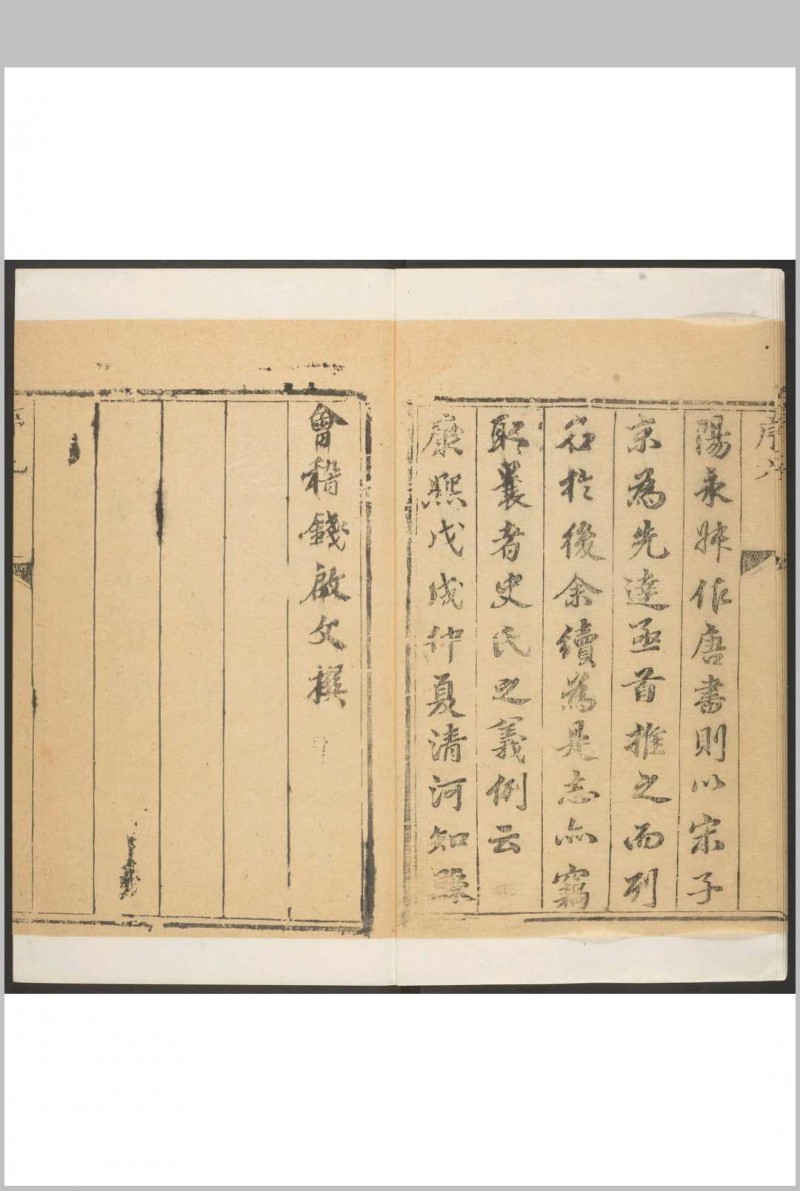 序六
陽永叔作唐書則以宋子
京為先達亟首推之而列
名於後余續為是志亦竊
取曩者史氏之義例云
康熙戊戌仲夏清河知縣
會稽錢啟文撰